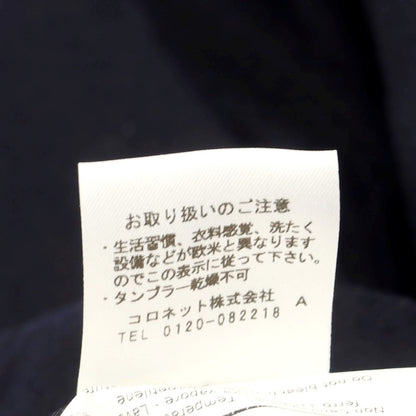 お取り扱いのご注意
・生活習慣、衣料感覚、洗たく
設備などが欧米と異なります
のでこの表示に従って下さい。
・タンブラー乾燥不可
コロネット株式会社 A
TEL 0120-082218
Do not bleach